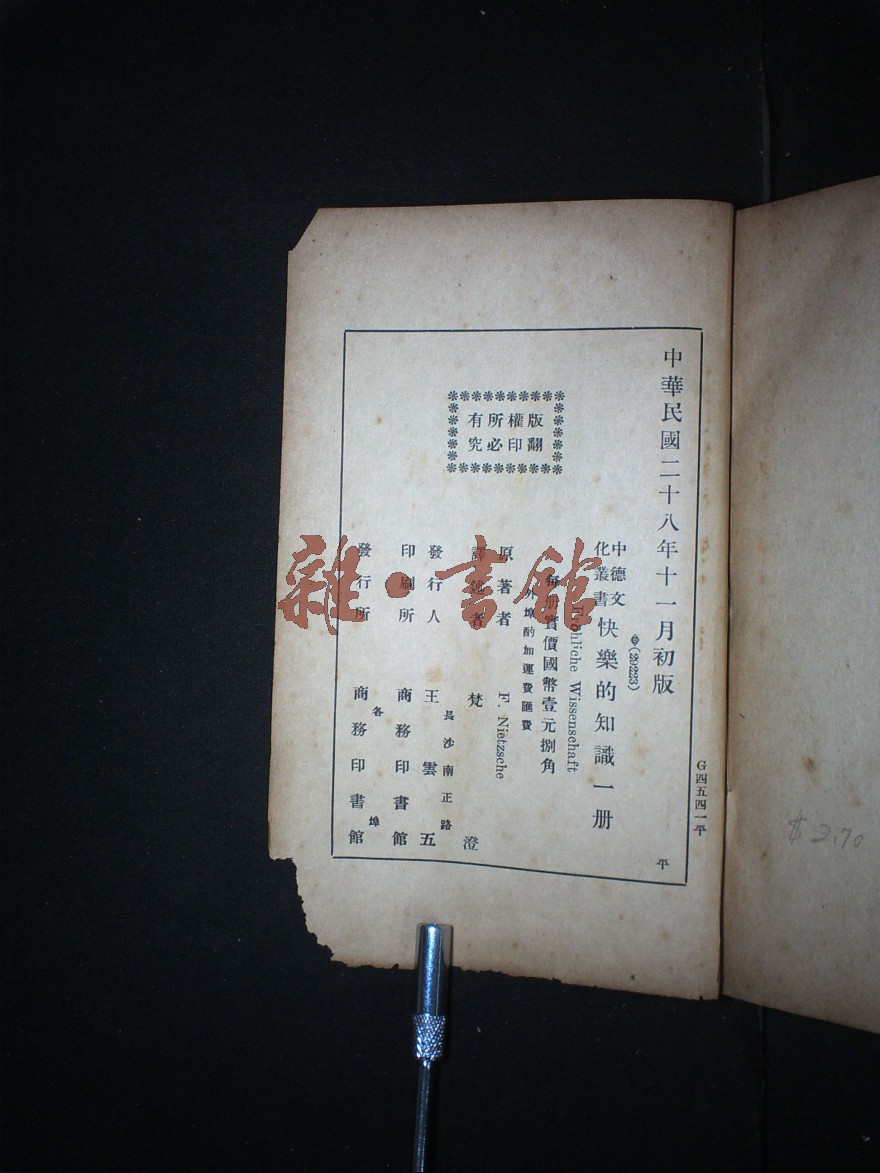 中華民國二十八年十一月初版
(25223)
中德文化叢書
快樂的知識一册
Fröhliche Wissenschaft
每册實價國幣壹元捌角
外埠酌加運費匯費
原著者 F. Nietzsche
譯述者 梵澄
發行人 王雲五
長沙南正路
印刷所 商務印書館
發行所 商務印書館
各埠
版權所有
翻印必究
G四五四一平
平
$2.70
雜·書館